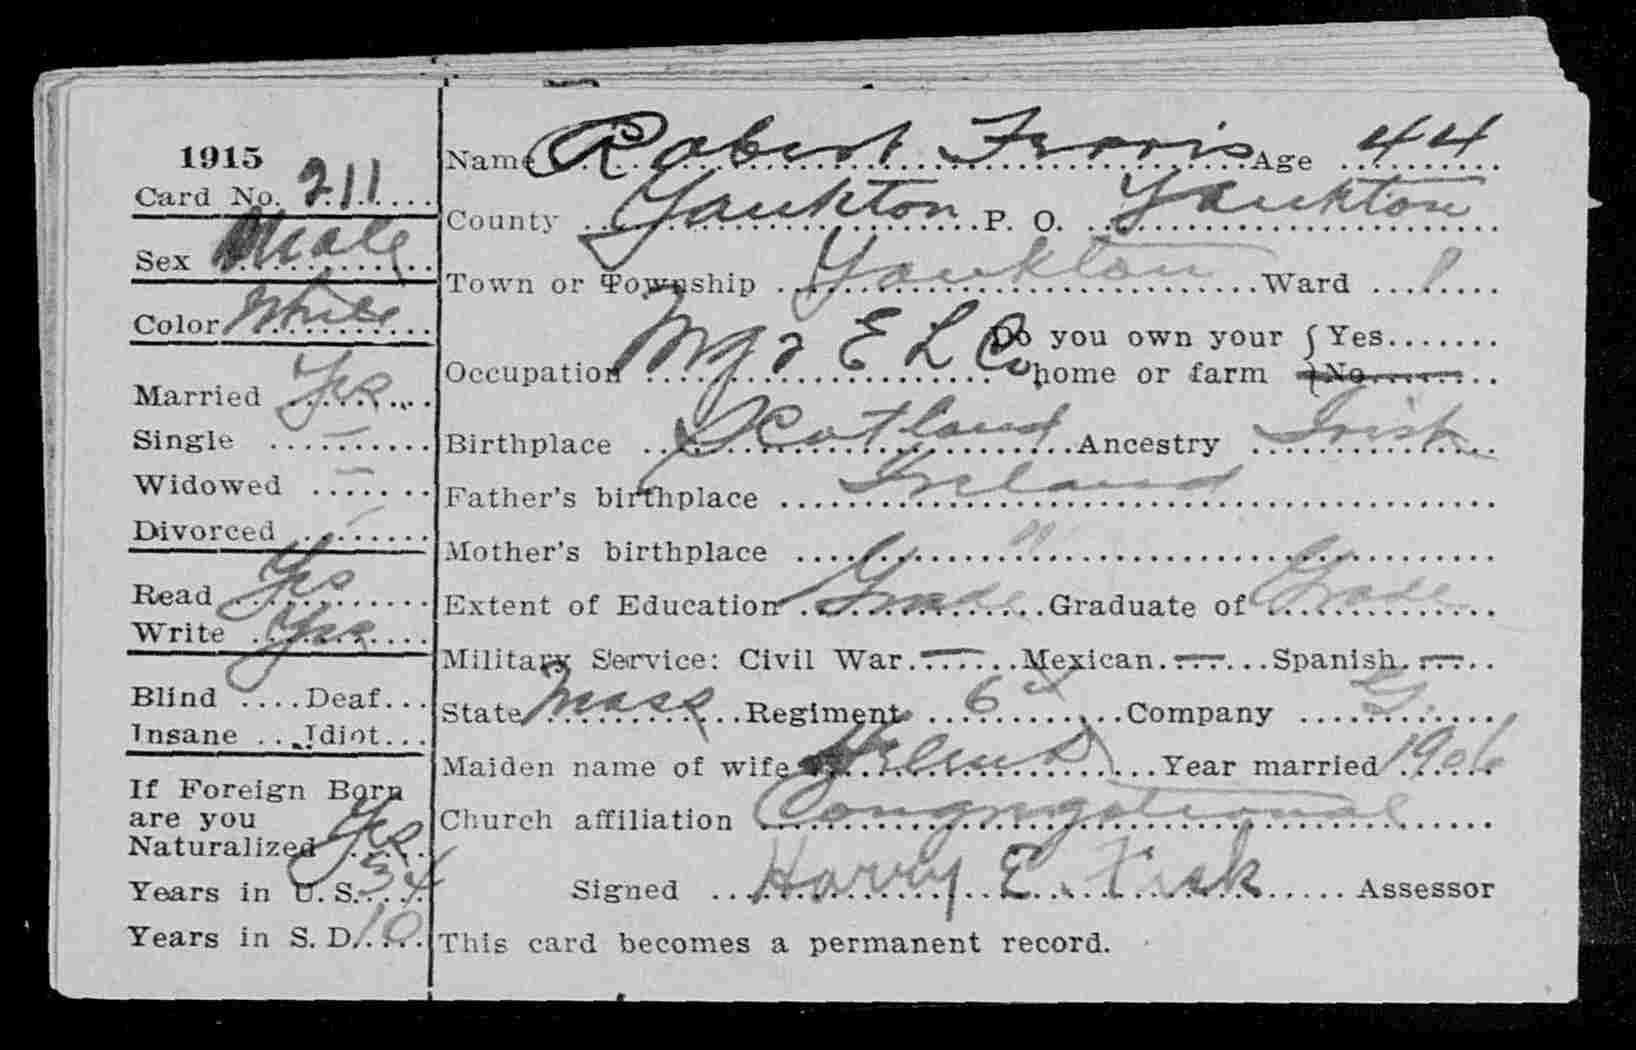 1915
Card No. 211
Sex Male
Color White
Married Yes
Single –
Widowed –
Divorced –
Read Yes
Write Yes
Blind .... Deaf...
Insane ... Idiot...
If Foreign Born
are you
Naturalized Yes
Years in U. S. 34
Years in S. D. 10
Name Robert Ferris Age 44
County Yankton P. O. Yankton
Town or Township Yankton Ward 1
Occupation Mgr E L Co Do you own your home or farm { Yes....... No
Birthplace Scotland Ancestry Irish
Father's birthplace Ireland
Mother's birthplace "
Extent of Education Grade Graduate of Grade
Military Service: Civil War – Mexican – Spanish –
State Mass Regiment 6 Company G.
Maiden name of wife Year married 1906
Church affiliation Congregational
Signed Harry E. Fisk Assessor
This card becomes a permanent record.